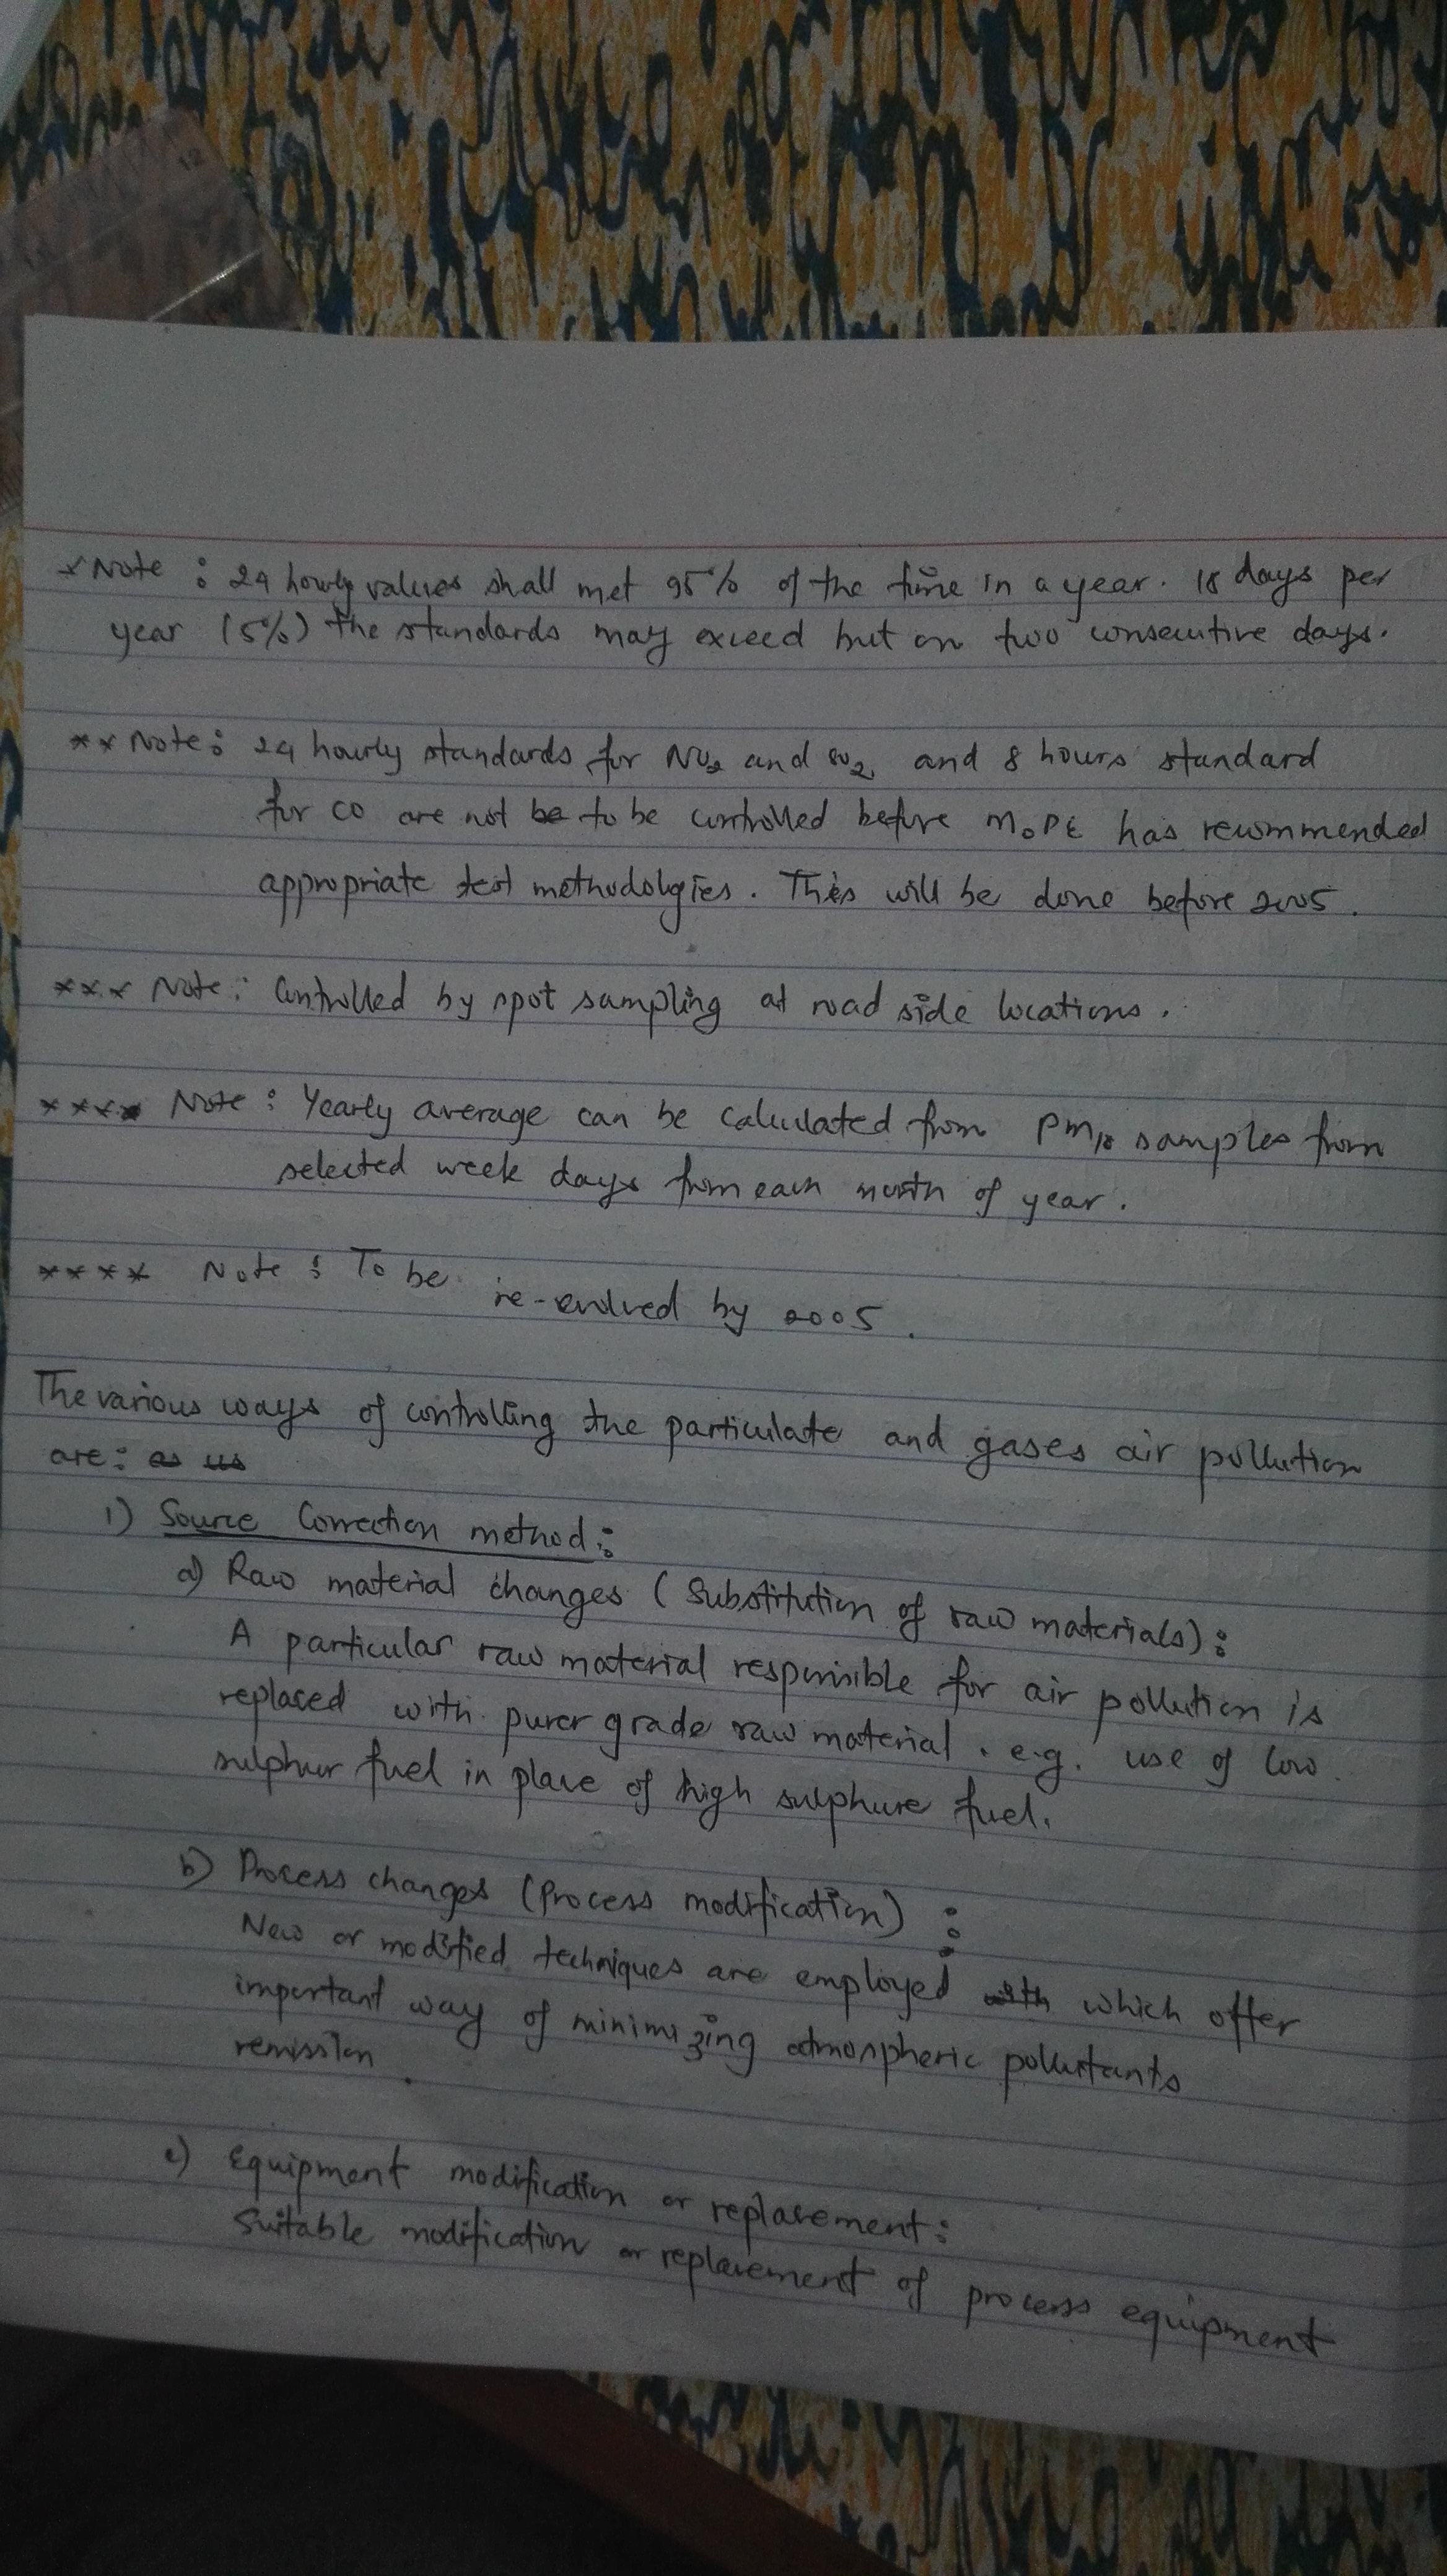 *Note : 24 hourly values shall met 95% of the time in a year. 18 days per
year (5%) the standards may exceed but on two consecutive days.
** Note: 24 hourly standards for NO2 and SO2, and 8 hours standard
for CO are not be to be controlled before MOPE has recommended
appropriate test methodologies. This will be done before 2005.
*** Note: Controlled by spot sampling at road side locations.
**** Note: Yearly average can be calculated from PM10 samples from
selected week days from each month of year.
**** Note : To be re-evolved by 2005.
The various ways of controlling the particulate and gases air pollution
are: as us
1) Source Correction method:
a) Raw material changes (Substitution of raw materials):
A particular raw material responsible for air pollution is
replaced with purer grade raw material. e.g. use of low
sulphur fuel in place of high sulphure fuel.
b) Process changes (Process modification) :
New or modified techniques are employed with which offer
important way of minimizing atmospheric pollutants
remission.
c) Equipment modification or replacement:
Suitable modification or replacement of process equipment